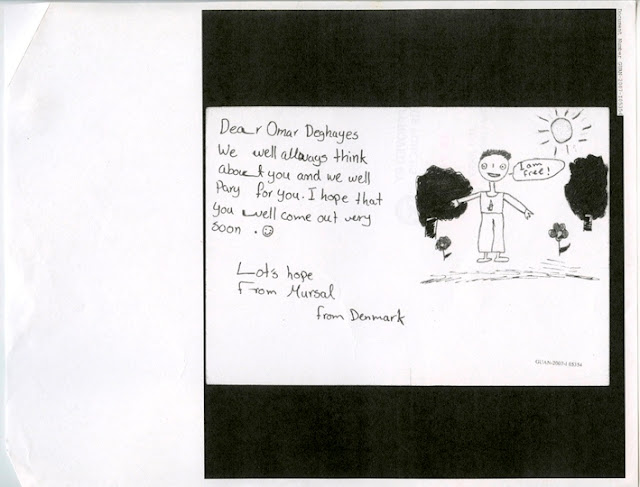 Dear Omar Deghayes
We well allways think
about you and we well
Pary for you. I hope that
you well come out very
soon . ☺
Lots hope
From Mursal
from Denmark
I am
free!